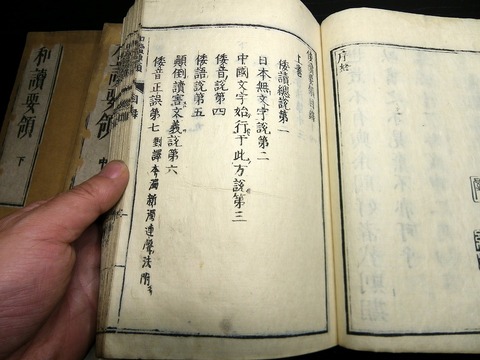 序終
倭讀要領目錄
上卷
倭讀總說第一
日本無文字說第二
中國文字始行于此方說第三
倭音說第四
倭語說第五
顛倒讀害文義說第六
倭音正誤第七 對譯本濁新濁連聲法附
目錄
要領 中
和讀要領 下